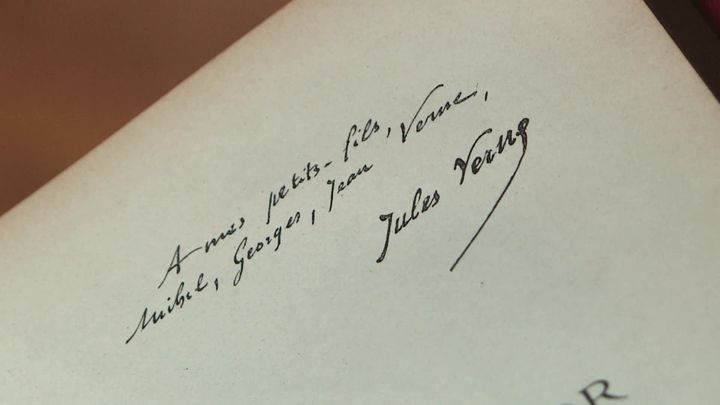 A mes petits-fils,
Michel, Georges, Jean Verne,
Jules Verne
OR